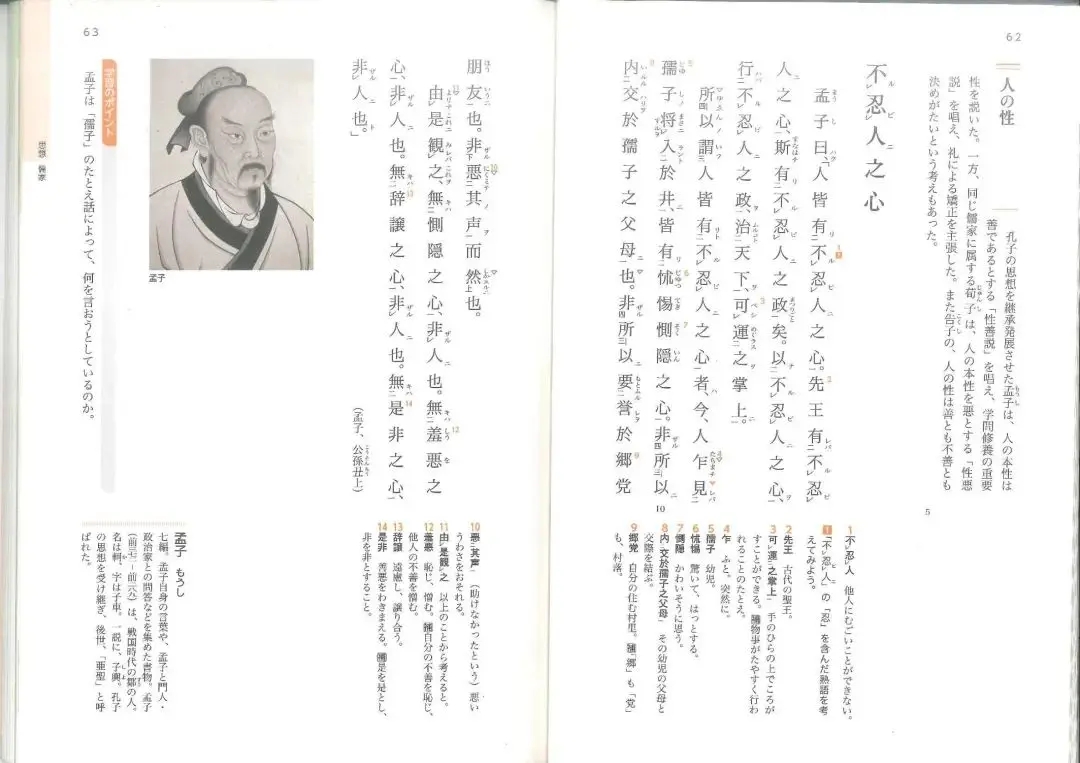 62
人の性
孔子の思想を継承発展させた孟子は、人の本性は
善であるとする「性善説」を唱え、学問修養の重要
性を説いた。一方、同じ儒家に属する荀子は、人の本性を悪とする「性悪
説」を唱え、礼による矯正を主張した。また告子の、人の性は善とも不善とも
決めがたいという考えもあった。
不忍人之心
孟子曰、「人皆有不忍人之心。先王有不忍
人之心、斯有不忍人之政矣。以不忍人之心、
行不忍人之政、治天下、可運之掌上。
所以謂人皆有不忍人之心者、今、人乍見
孺子将入於井、皆有怵惕惻隠之心。非所以
内交於孺子之父母也。非所以要誉於郷党
5
10
1 不忍人 他人にむごいことができない。
1 「不忍人」の「忍」を含んだ熟語を考
えてみよう。
2 先王 古代の聖王。
3 可運之掌上 手のひらの上でころが
すことができる。物事がたやすく行わ
れることのたとえ。
4 乍 ふと。突然に。
5 孺子 幼児。
6 怵惕 驚いて、はっとする。
7 惻隠 かわいそうに思う。
8 内交於孺子之父母 その幼児の父母と
交際を結ぶ。
9 郷党 自分の住む村里。「郷」も「党」
も、村落。
63
朋友也。非悪其声而然也。
由是観之、無惻隠之心、非人也。無羞悪之
心、非人也。無辞譲之心、非人也。無是非之心、
非人也。」
(孟子、公孫丑上)
孟子
学習のポイント
孟子は「孺子」のたとえ話によって、何を言おうとしているのか。
思想 儒家
10 悪其声 (助けなかったという)悪い
うわさをおそれる。
11 由是観之 以上のことから考えると。
12 羞悪 恥じ、憎む。自分の不善を恥じ、
他人の不善を憎む。
13 辞譲 遠慮し、譲り合う。
14 是非 善悪をわきまえる。是を是とし、
非を非とすること。
孟子 もうし
七編。孟子自身の言葉や、孟子と門人・
政治家との問答などを集めた書物。孟子
は、戦国時代の鄒の人。
名は軻、字は子車。一説に、子輿。孔子
の思想を受け継ぎ、後世、「亜聖」と呼
ばれた。